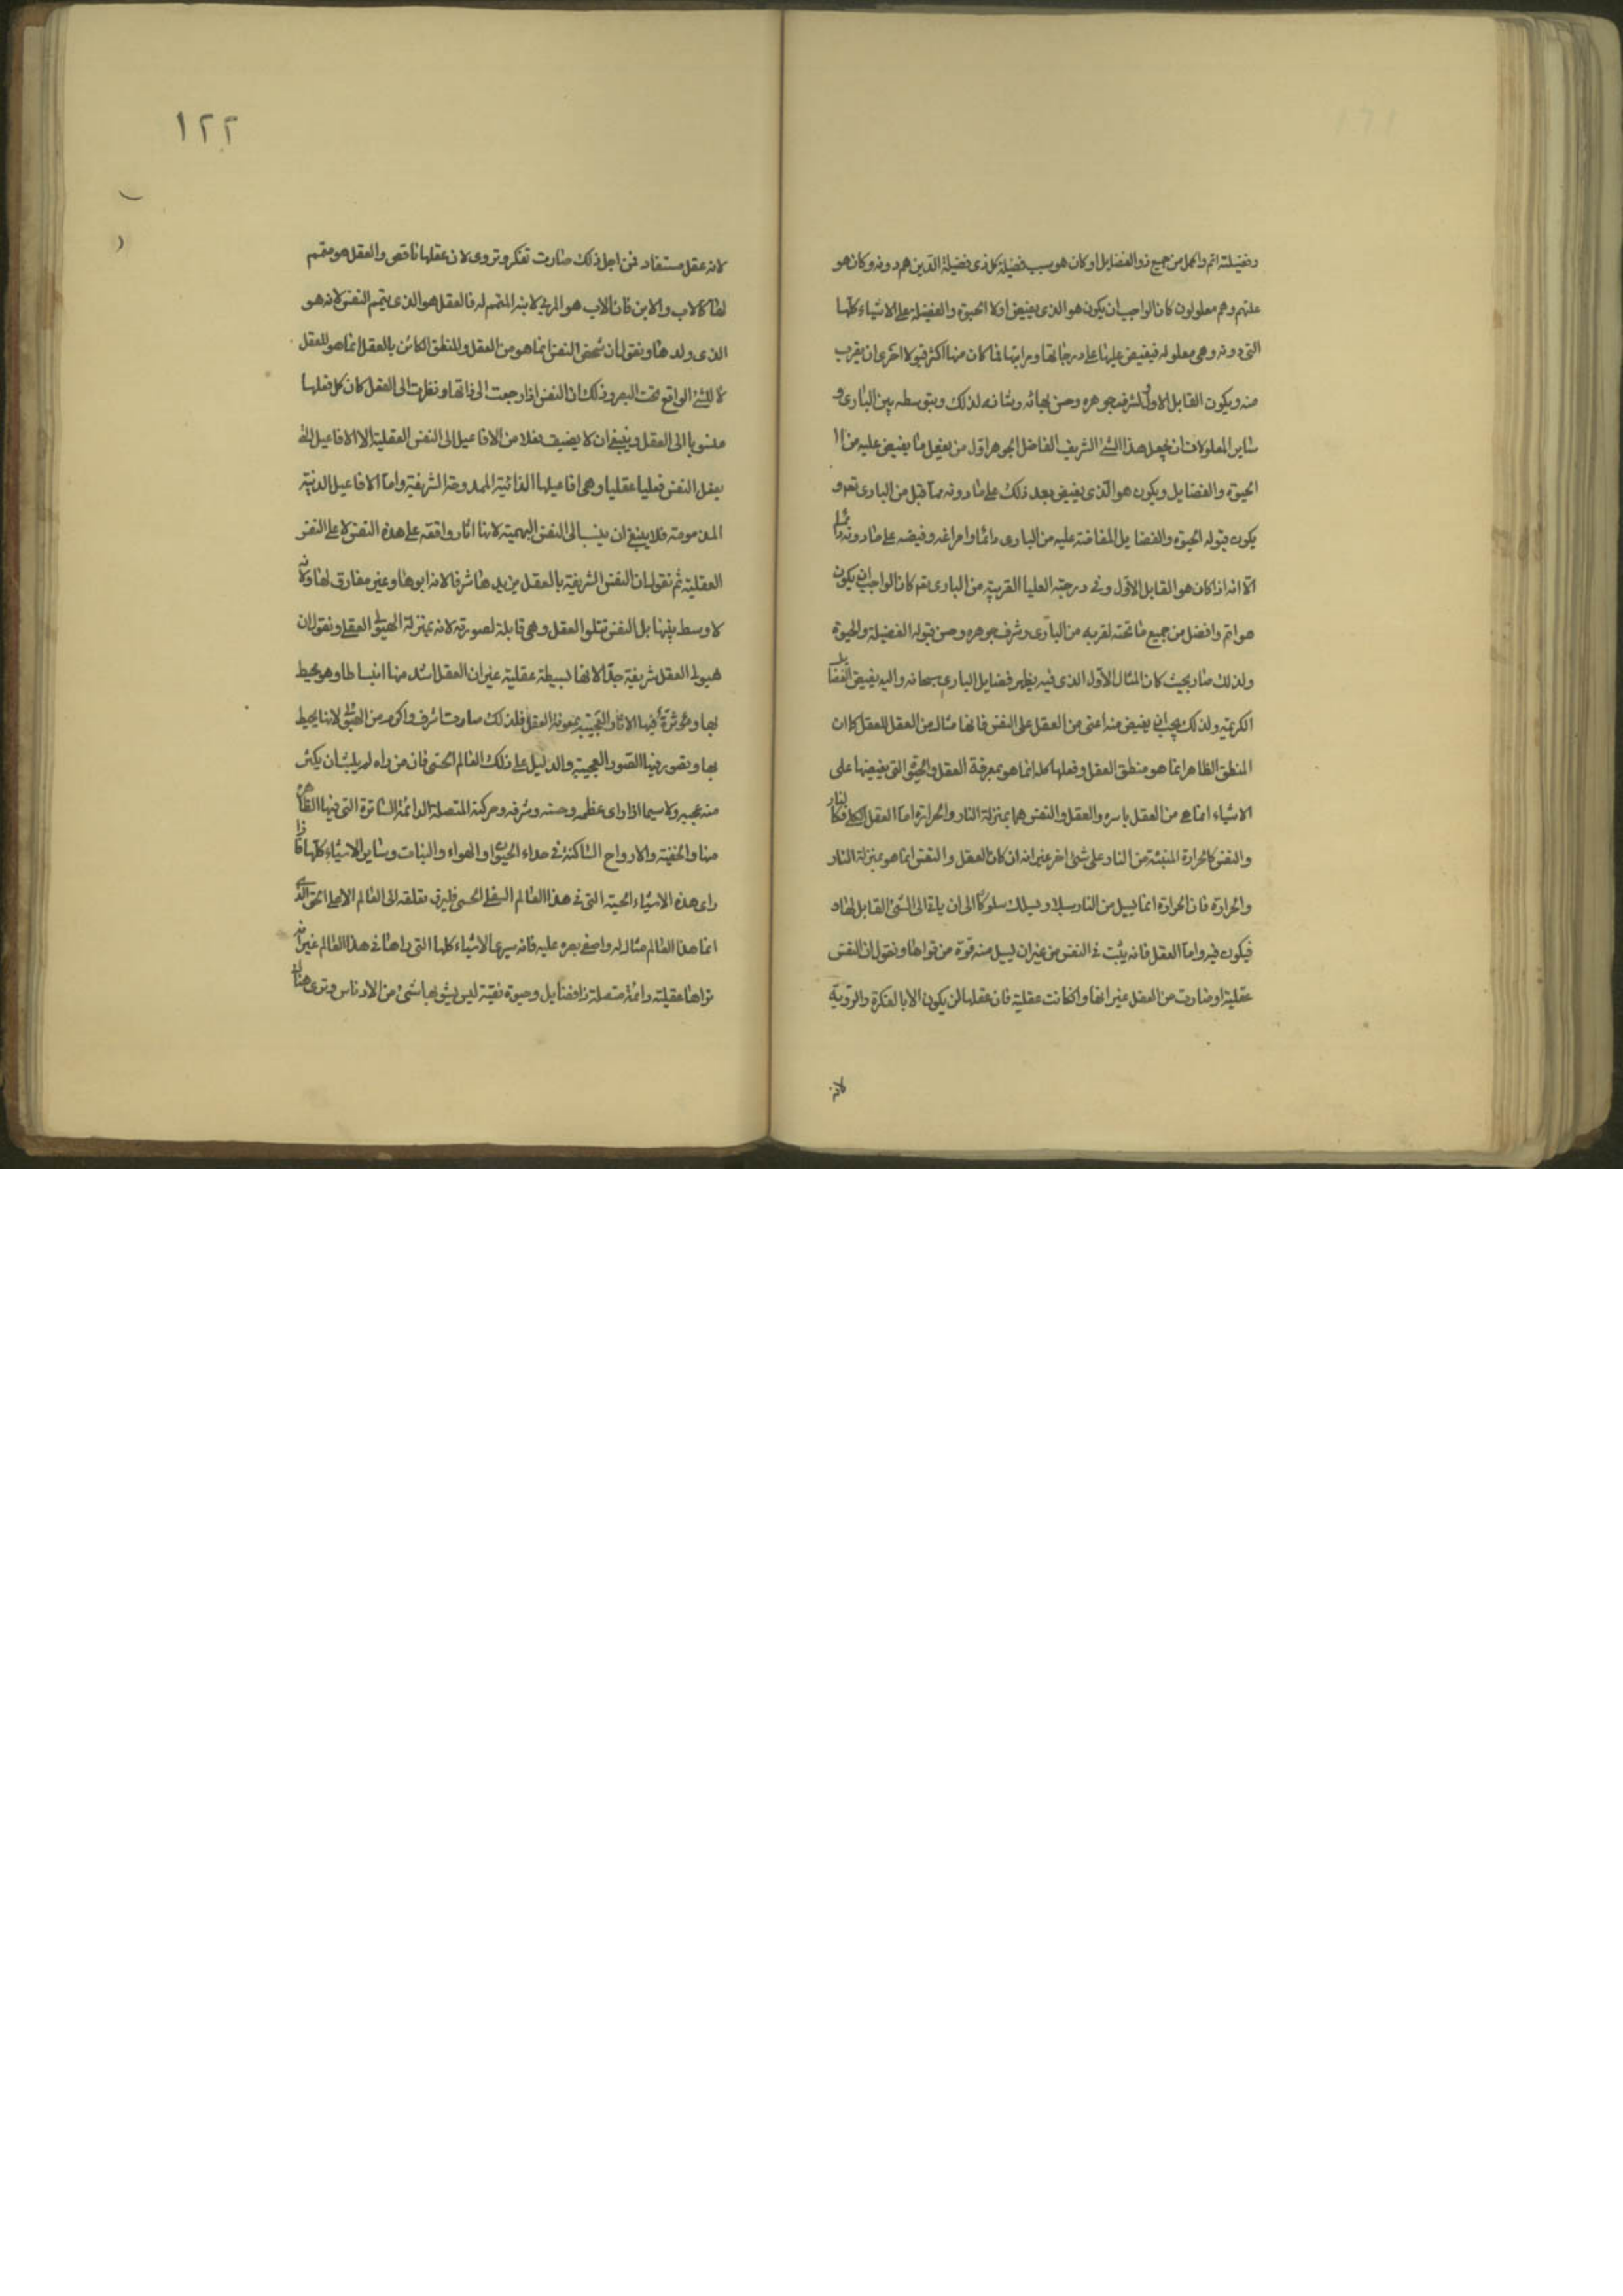 وفضيلته اتم واكمل من جميع ذوا الفضايل او كان هو سبب فضيلة كل ذى فضيلة الذين هم دونه وكان هو
علتهم وهم معلولون كان الواجب ان يكون هو الذى يفيض اولا الحيوة والفضيلة على الاشياء كلها
التى دونه وهى معلوله فيفيض عليها على درجاتها ومراتبها فما كان منها اكثر قبولا احرى ان يقرب
منه ويكون القابل الاول لشرف جوهره وحسن بهائه وبثانه لذلك ويتوسطه بين البارى و
ساير المعلولات ان يجعل هذا الشئ الشريف الفاضل الجوهر اول من يقبل ما يفيض عليه من
الحيوة والفضايل ويكون هو الذى يفيض بعد ذلك على ما دونه مما قبل من البارى تعه و
يكون قبوله الحيوة والفضايل المفاضة عليه من البارى دائما وافراغه وفيضه على ما دونه دائما
الا انه اذا كان هو القابل الاول وفى درجته العليا القريبة من البارى تعه كان الواجب ان يكون
هو اتم وافضل من جميع ما تحته لقربه من البارى وشرف جوهره وحسن قبوله الفضيلة والحيوة
ولذلك صار بحيث كان المثال الاول الذى فيه يظهر فضايل البارى سبحانه واليه يفيض الفضايل
الكريمة ولذلك يجب ان يفيض منه اعنى من العقل على النفس فانها مثال من العقل للعقل كما ان
المنطق الظاهر انما هو منطق العقل وفعلها كله انما هو بمعرفة العقل والحيوة التى يفيضها على
الاشياء انما هى من العقل باسره والعقل والنفس هما بمنزلة النار والحرارة اما العقل الكلى فكالنار
والنفس كالحرارة المنبثة من النار على شئ اخر غير انه ان كان العقل والنفس انما هو بمنزلة النار
والحرارة فان الحرارة انما تسيل من النار سيلا ويسلك سلوكا الى ان ياتى الى الشئ القابل لها
فيكون فيه واما العقل فانه يثبت فى النفس من غير ان يسيل منه قوة من قواها ونقول ان النفس
عقلية اوصارت من العقل غير انها وان كانت عقلية فان عقلها لن يكون الا بالفكرة والروية
لانه
١٢٢
لانه عقل مستفاد فمن اجل ذلك صارت تفكر وتروى لان عقلها ناقص والعقل هو متمم
لها كالاب والابن فان الاب هو المربى لابنه المتمم له فالعقل هو الذى يتمم النفس لانه هو
الذى ولدها ونقول ان شخص النفس انما هو من العقل وللنطق الكائن بالعقل انما هو للعقل
لا للشئ الواقع تحت البصر وذلك ان النفس اذا رجعت الى ذاتها ونظرت الى العقل كان كل فعلها
منسوبا الى العقل وينبغى ان لا يضيف فعلا من الافاعيل الى النفس العقلية الا الافاعيل التى
يفعل النفس فعليا عقليا وهى افاعيلها الذاتية الممدوحة الشريفة واما الافاعيل الدنية
المذمومة فلا ينبغى ان ينسب الى النفس البهيمية لانها اثار واقعة على هذه النفس لا على النفس
العقلية ثم نقول ان النفس الشريفة بالعقل يزيدها شرفا لانه ابوها وغير مفارق لها ولانه
لا وسط بينهما بل النفس تتلوا العقل وهى قابلة لصورته لانه بمنزلة الهيولى العقلى ونقول ان
هيولى العقل شريفة جدا لانها بسيطة عقلية غير ان العقل اشد منها انبساطا وهو محيط
بها ومؤثرة فيها الاثار العجيبة بمعونة العقل فلذلك صارت اشرف واكرم من الهيولى لانها يحيط
بها ويصور فيها الصور العجيبة والدليل على ذلك العالم الحسى فان من راه لم يلبث ان يكثر
منه عجبه ولا سيما اذا راى عظمه وحسنه وشرفه وحركته المتصلة الدائمة السائرة التى فيها الظاهرة
منها والخفية والارواح الساكنة فى هذا العالم الحيوان والهواء والنبات وساير الاشياء كلها فاذا
راى هذه الاشياء الحسية التى فى هذا العالم السفلى الحسى فليرق بعقله الى العالم الاعلى الحق الذى
انما هذا العالم مثال له واصفى بصره عليه فانه سيرى الاشياء كلها التى راها فى هذا العالم غير انه
يراها عقلية دائمة متصلة ذا فضايل وحيوة نقية ليس يشوبها شئ من الادناس وترى هناك